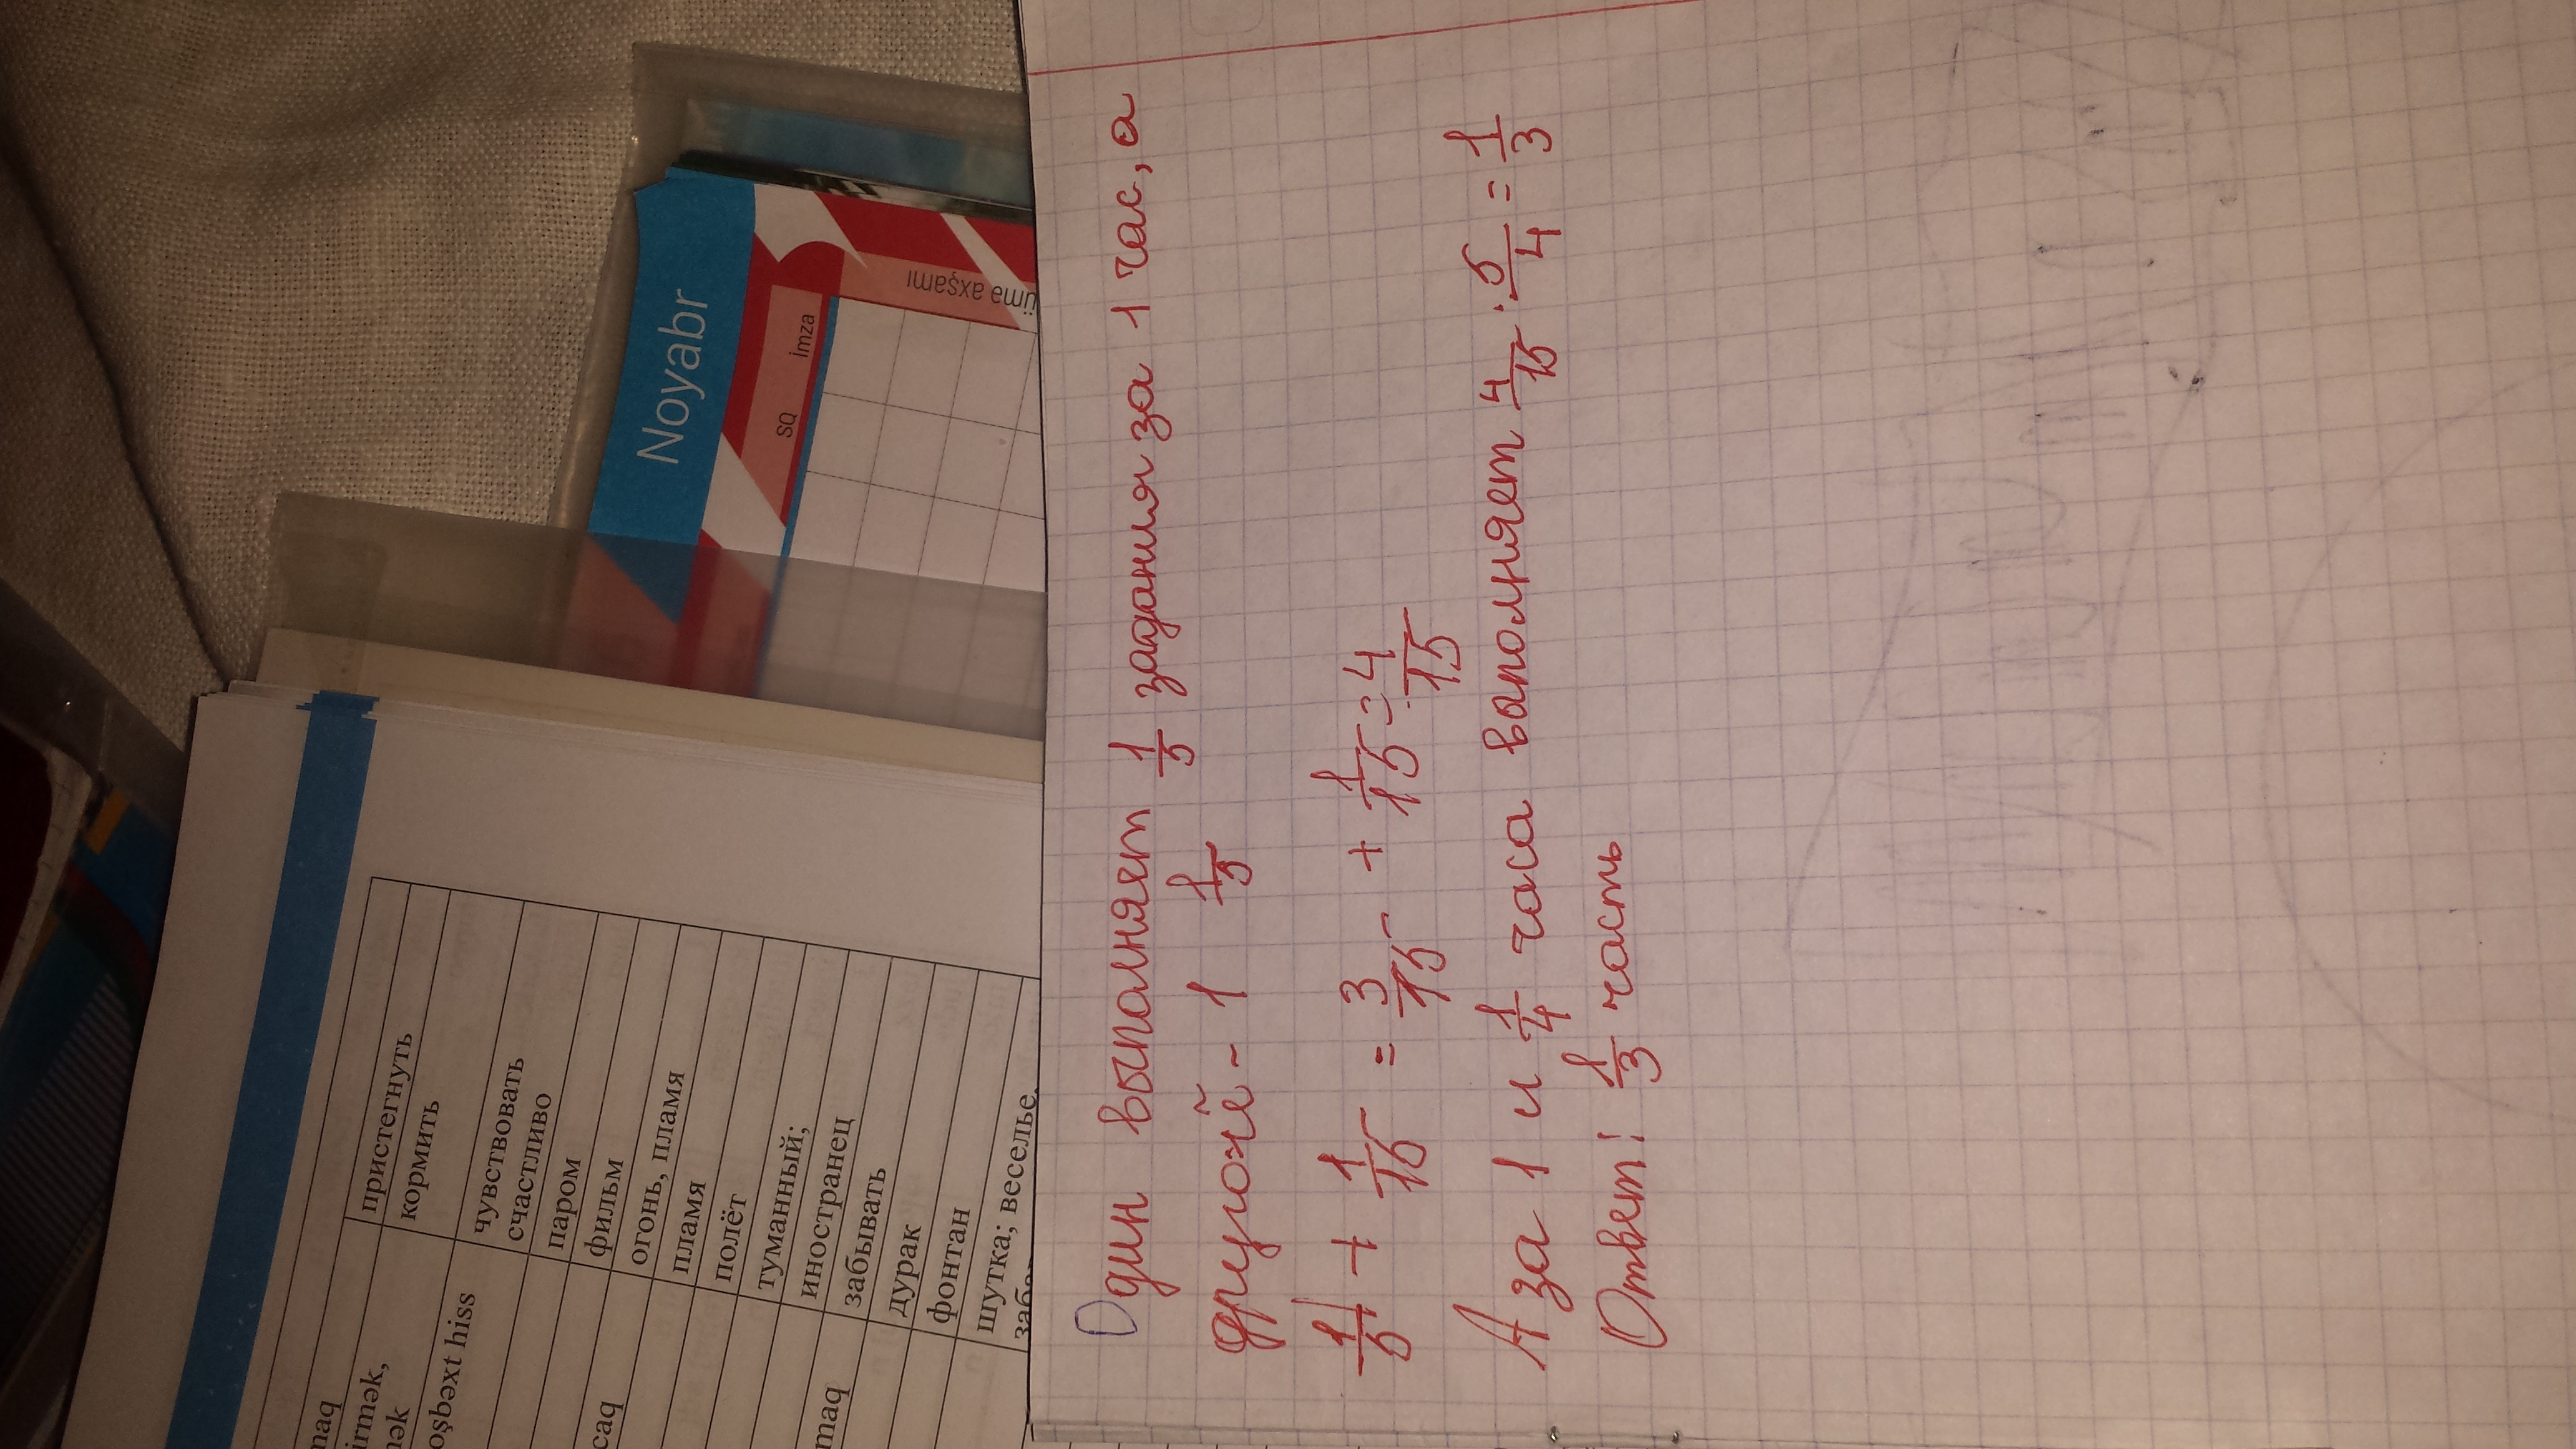 Один выполняет 1/5 задания за 1 час, а
другой - 1 1/5
1/5 + 1/15 = 3/15 + 1/15 = 4/15
А за 1 и 1/4 часа выполняет 4/15 · 5/4 = 1/3
Ответ: 1/3 часть
Noyabr
SQ
İmza
ümə axşamı
maq
irmək,
ək
oşbəxt hiss
caq
maq
пристегнуть
кормить
чувствовать
счастливо
паром
фильм
огонь, пламя
пламя
полёт
туманный;
иностранец
забывать
дурак
фонтан
шутка; веселье